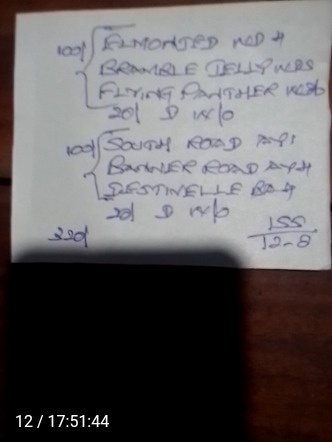 100/ ELMONTED
BRAMBLE JELLY
FLYING PANTHER
20/ D W/O
100/ SOUTH ROAD
BANNER ROAD
DESTINELLE
20/ D W/O
220/
155
12-8
12 / 17:51:44